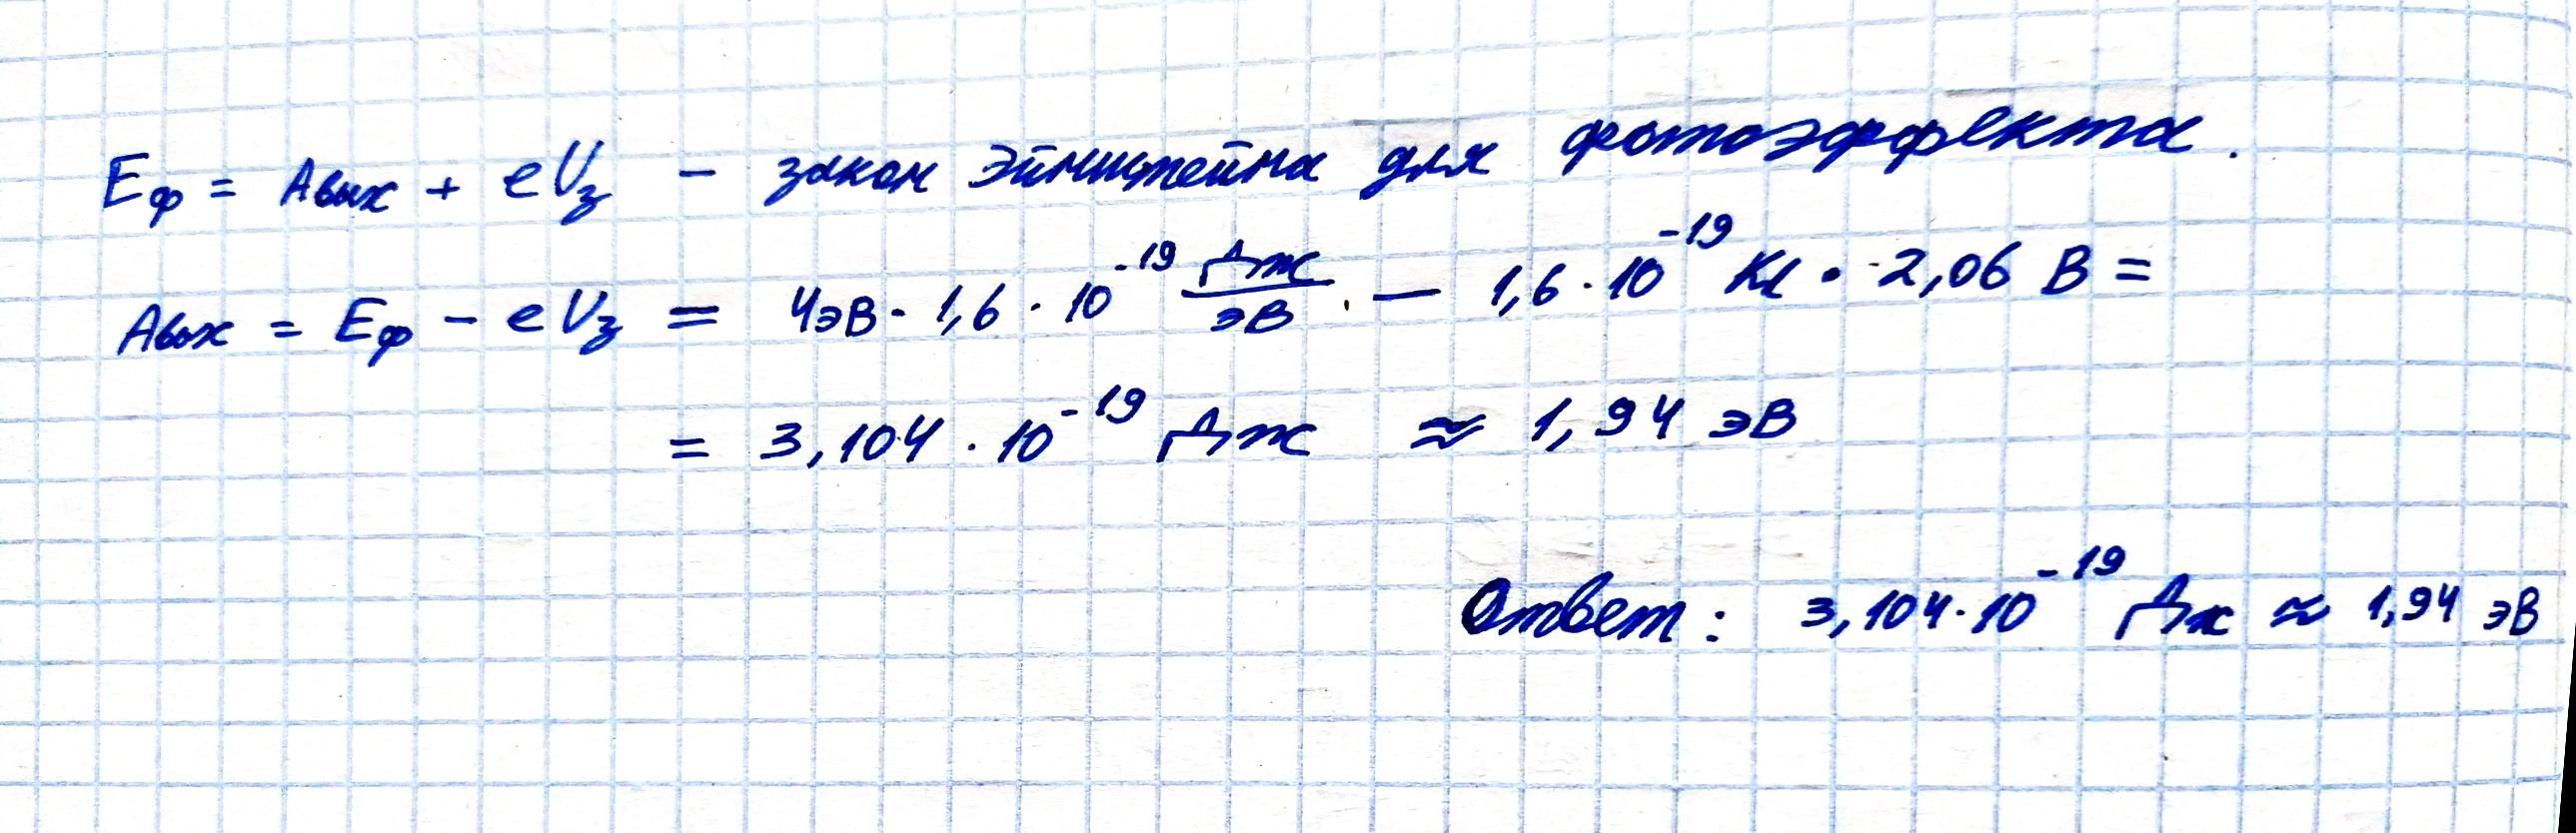 Eф = Aвых + eUз - закон эйнштейна для фотоэффекта.
Aвых = Eф - eUз = 4эВ · 1,6 · 10^-19 Дж/эВ · — 1,6 · 10^-19 Кл · 2,06 В =
= 3,104 · 10^-19 Дж ≈ 1,94 эВ
Ответ: 3,104 · 10^-19 Дж ≈ 1,94 эВ